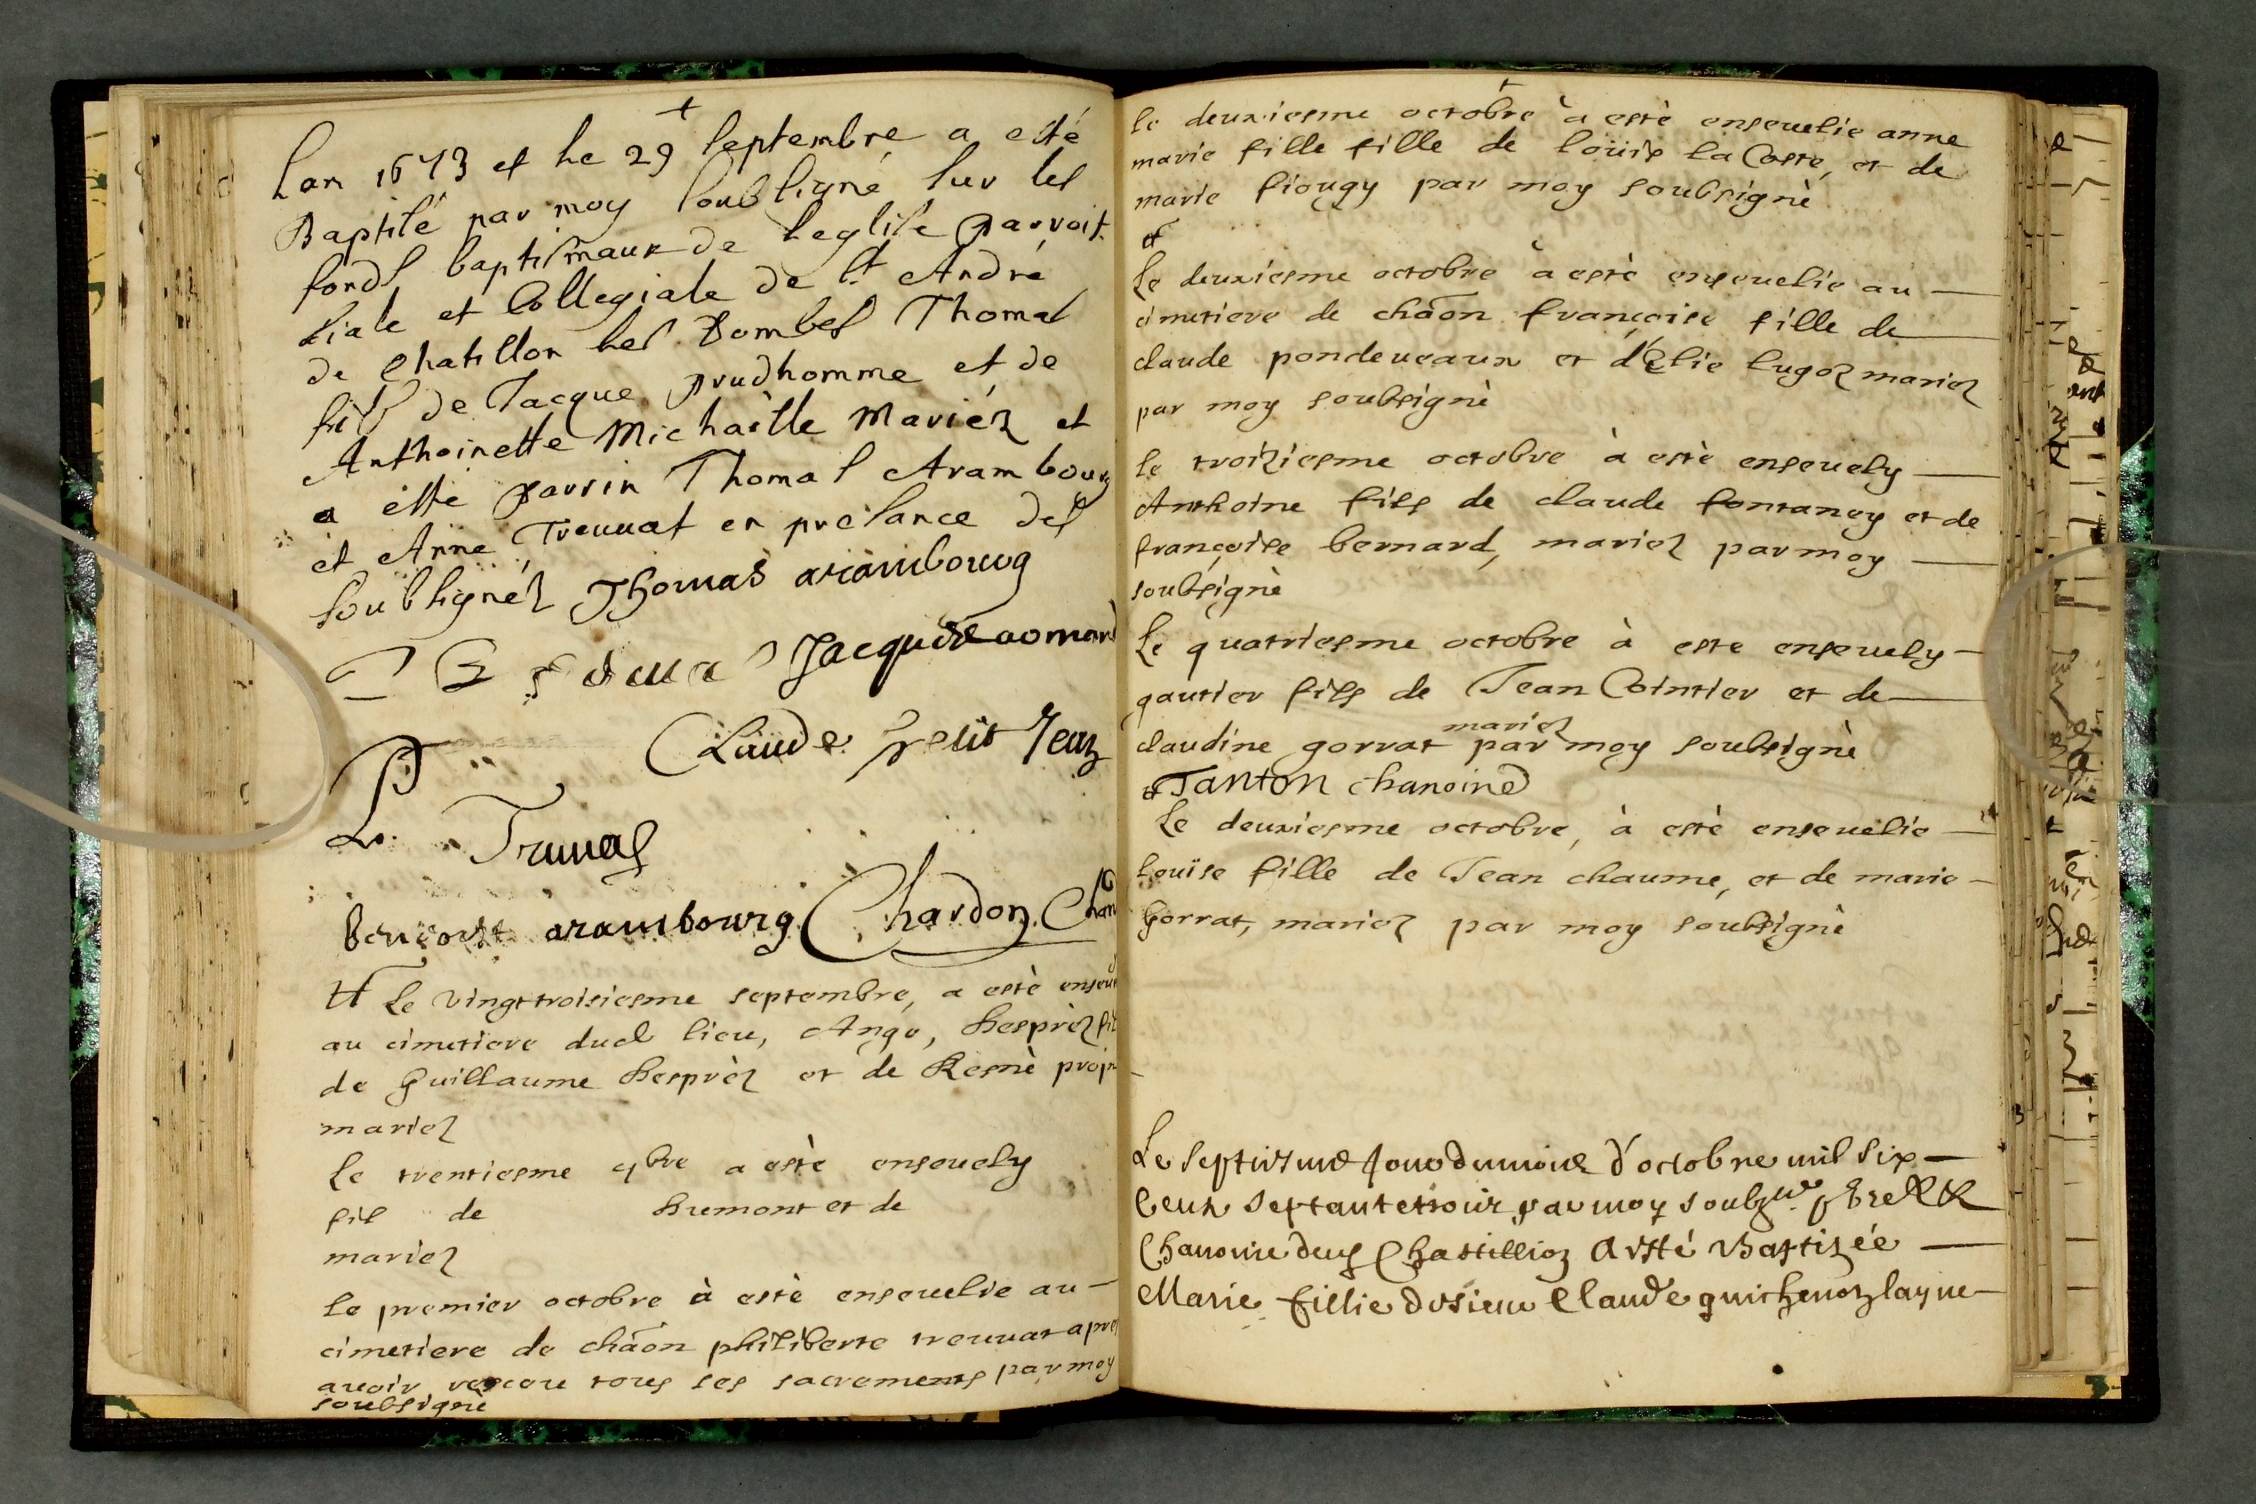 Lan 1673 et le 29 septembre a esté
Baptisé par moy soubsigné sur les
fonds baptismaux de leglise parrois
siale et Collegiale de st André
de Chatillon les Dombes Thomas
fils de Jacque prudhomme et de
Anthoinette Michaëlle Mariéz et
a esté parrin Thomas Arambourg
et Anne Treuuat en presance des
soubsignéz Thomas arambourg
Jacque
Claude petit Jean
Bencoist arambourg Chardon Chan
Le vingt troisiesme septembre, a estè enseu
au cimetiere dud lieu, Ange, hesprèz fil
de Guillaume hesprèz et de Resnè
mariez
Le trentiesme 7bre a estè enseuely
fils de hremont et de
mariez
le premier octobre à estè enseuelie au
cimetiere de chãon philiberte treuuat apres
auoir receu tous ses sacrements par moy
soubsignè
le deuxiesme octobre à estè enseuelie anne
marie fille fille de loüis la Coste, et de
marie fiougy par moy soubsignè
et
Le deuxiesme octobre à estè enseuelie au
cimetiere de chãon françoise fille de
claude pondeueaux et d'Elie lugoz mariez
par moy soubsignè
le troiziesme octobre à estè enseuely
Anthoine fils de claude fontaney et de
françoise bernard, mariez par moy
soubsignè
Le quatriesme octobre à este enseuely
gautier fils de Jean Cointier et de
mariez
claudine gorrat par moy soubsignè
et Tanton chanoine
Le deuxiesme octobre, à estè enseuelie
Louïse fille de Jean chaume, et de marie
Gorrat, mariez par moy soubsignè
Le septiesme Jour du mois d'octobre mil six
Cens septante trois par moy soubzne
Chanoine deud Chastillion a esté Baptizée
Marie fillie de sieur Claude guichenon layne